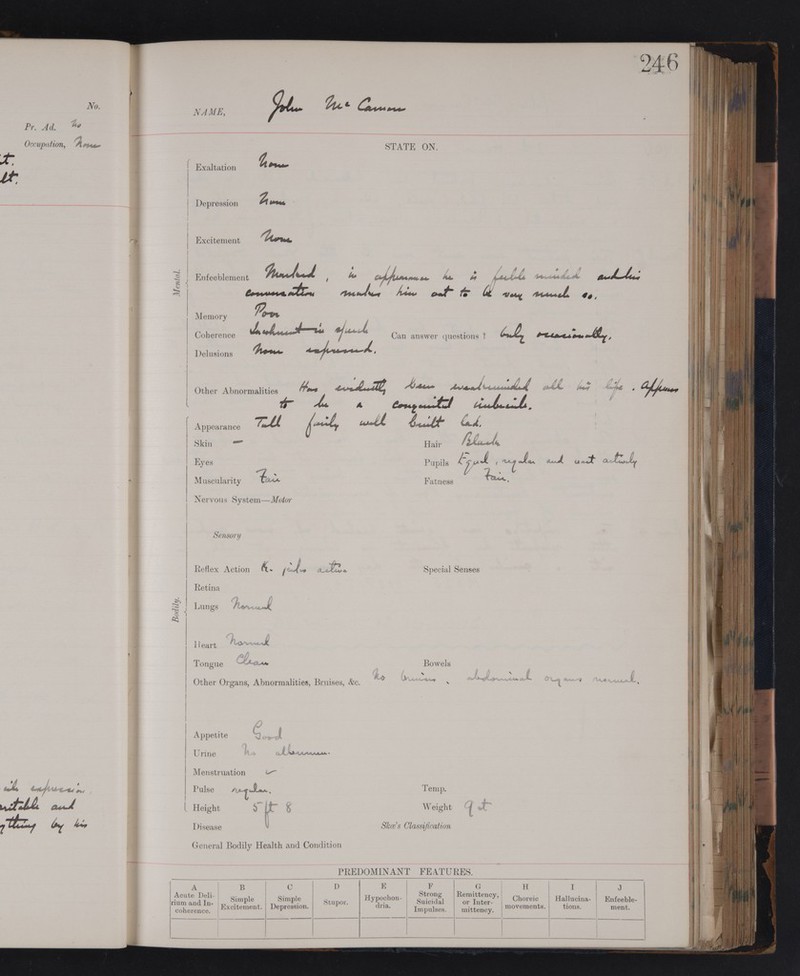 246
No.
Pr. Ad. No
Occupation, None
NAME, John Mc Camon
STATE ON.
Mental.
Exaltation None
Depression None
Excitement None
Enfeeblement Marked, in appearance he is feeble minded and his
conversation makes him out to be very much so.
Memory Poor
Coherence Incoherent in speech Can answer questions? Only occasionally.
Delusions None expressed.
Other Abnormalities Has evidently been weakminded all his life. Appears
to be a congenital imbecile.
Bodily.
Appearance Tall fairly well built lad.
Skin — Hair Black
Eyes Pupils Equal, regular and react actively
Muscularity Fair Fatness Fair.
Nervous System—Motor
Sensory
Reflex Action K. jerks active Special Senses
Retina
Lungs Normal
Heart Normal
Tongue Clean Bowels
Other Organs, Abnormalities, Bruises, &c. No bruises. abdominal organs normal.
Appetite Good
Urine No albumen.
Menstruation
Pulse regular. Temp.
Height 5 ft 8 Weight 9 st
Disease Skae's Classification
General Bodily Health and Condition
expression
and
by his
PREDOMINANT FEATURES.
A B C D E F G H I J
Acute Delirium and Incoherence. Simple Excitement. Simple Depression. Stupor. Hypochondria. Strong Suicidal Impulses. Remittency, or Intermittency. Choreic movements. Hallucinations. Enfeeblement.